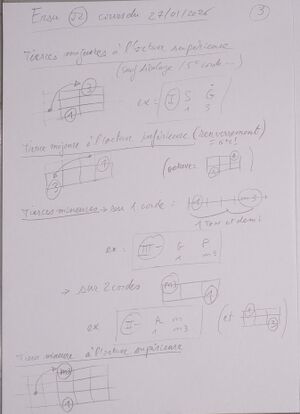 Ensu J2 cours du 27/01/2026 3
Tierces majeures à l'octave supérieure
(sauf décalage / 5e corde...)
3
1
ex = I S G
1 3
Tierce majeure à l'octave inférieure (renversement)
= 6te!
1
3
(octaves
Tierces mineures → sur 1 corde :
1 m3
1 Ton et demi
ex : III - G P
1 m3
→ sur 2 cordes
m3
1
ex I - R m
1 m3
(et
1
3
Tierce mineure à l'octave supérieure
m3
1